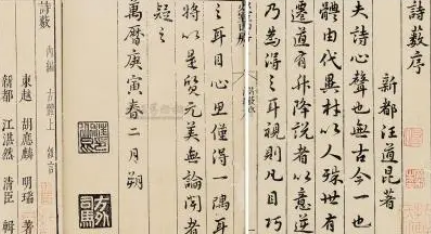 詩藪序
新都汪道昆著
夫詩心聲也無古今一也
體由代異材以人殊世有
遷道有升降說者以意逆
乃為得之耳視則凡目巧
之耳目心里僅得一隅耳
將以是質元美無論聞者
疑之
萬曆庚寅春二月朔
方外司馬
詩藪 內編 古體上 雜言
東越 胡應麟 明瑞 著
新都 江湛然 清臣 輯